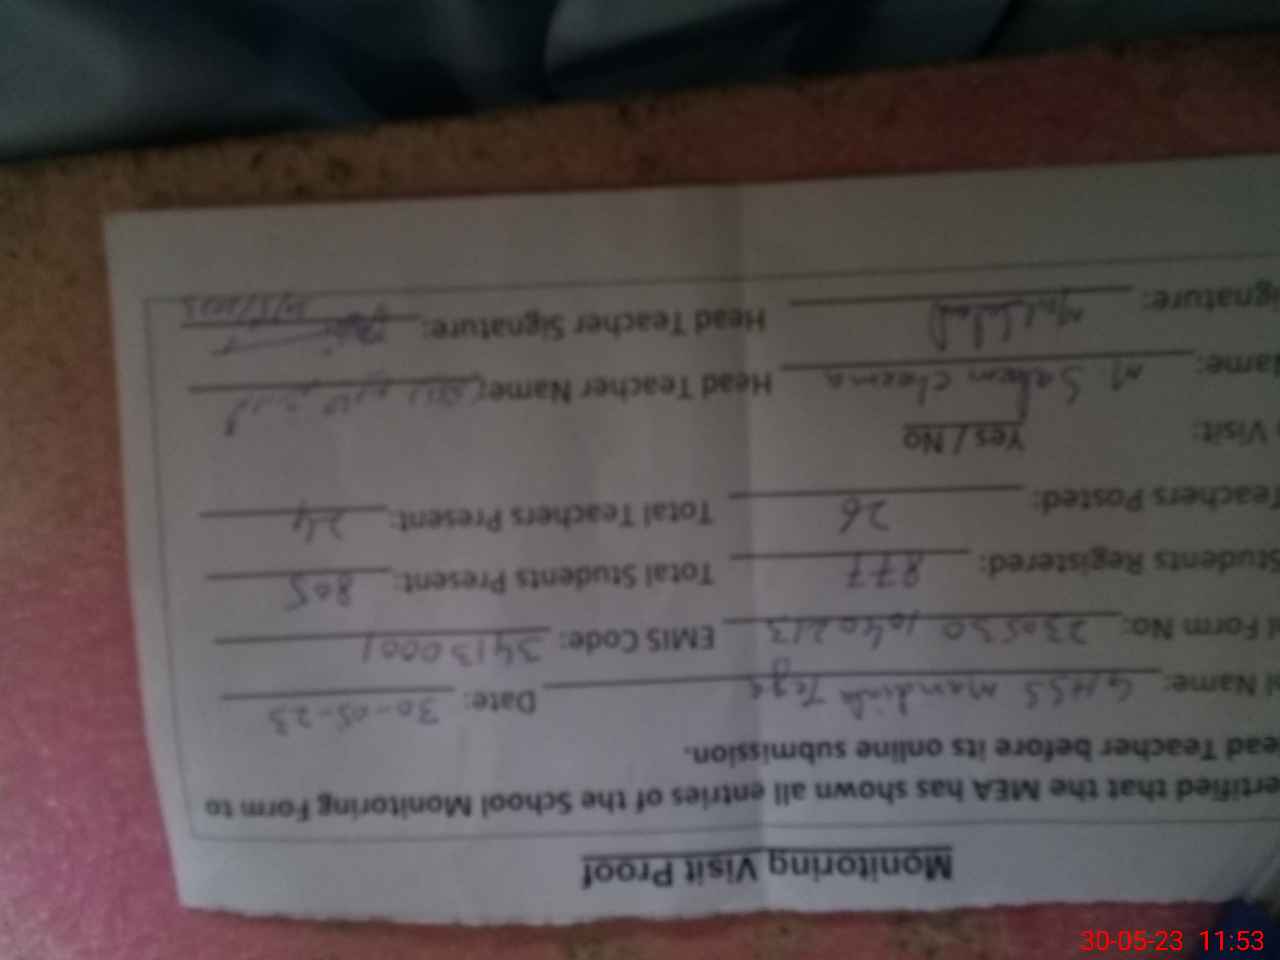 Monitoring Visit Proof
ertified that the MEA has shown all entries of the School Monitoring Form to
ead Teacher before its online submission.
l Name: GHSS Mandiala Tega Date: 30-05-23
l Form No: 230530 1040213 EMIS Code: 34130001
Students Registered: 877 Total Students Present: 805
Teachers Posted: 26 Total Teachers Present: 24
Visit: Yes / No
Name: M Saleem Cheema Head Teacher Name:
Signature: Head Teacher Signature:
30-05-23 11:53